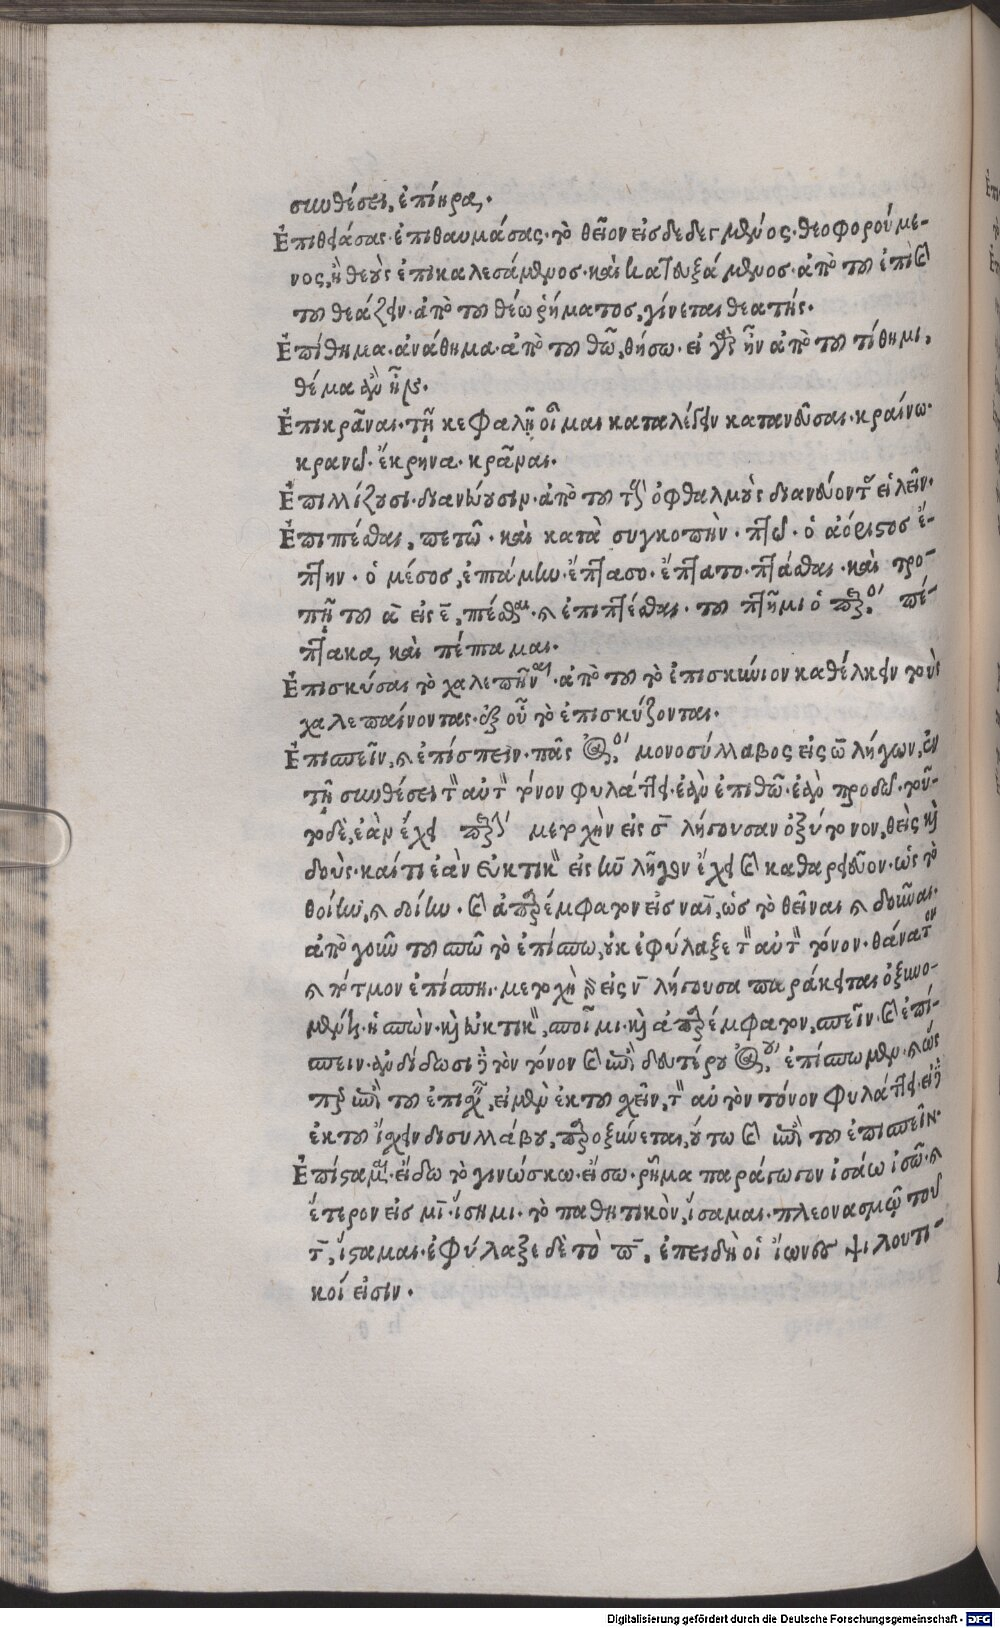 συνθέσει, ἐπίηρα.
Ἐπιθειάσας· ἐπιθαυμάσας· τὸ θεῖον εἰσδεδεγμένος· θεοφορούμε-
νος, ἢ θεοὺς ἐπικαλεσάμενος· καὶ κατευξάμενος· ἀπὸ τοῦ ἐπὶ καὶ
τοῦ θεάζειν· ἀπὸ τοῦ θέω ῥήματος, γίνεται θεατής·
Ἐπίθημα· ἀνάθημα· ἀπὸ τοῦ θῶ, θήσω· εἰ γὰρ ἦν ἀπὸ τοῦ τίθημι,
θέμα ἂν ἦν·
Ἐπικρᾶναι· τῇ κεφαλῇ οἶμαι καταλέγειν κατανεῦσαι· κραίνω·
κρανῶ· ἔκρηνα· κρᾶναι·
Ἐπιλλίζουσι· διανεύουσιν· ἀπὸ τοῦ τοὺς ὀφθαλμοὺς διανεύοντας εἰλεῖν·
Ἐπιπτέσθαι, πετῶ· καὶ κατὰ συγκοπὴν· πτῶ· ὁ ἀόριστος ἔ-
πτην· ὁ μέσος, ἐπτάμην· ἔπτασο· ἔπτατο· πτάσθαι· καὶ τρο-
πῇ τοῦ α εἰς ε, πτέσθαι· καὶ ἐπιπτέσθαι· τοῦ πτῆμι ὁ παρακείμενος πέ-
πτακα, καὶ πέπταμαι·
Ἐπισκύσαι τὸ χαλεπῆναι· ἀπὸ τοῦ τὸ ἐπισκύνιον καθέλκειν τοὺς
χαλεπαίνοντας· ἐξ οὗ τὸ ἐπισκύζοντας·
Ἐπισπεῖν, καὶ ἐπίσπειν· πᾶς μονοσύλλαβος εἰς ω λήγων, ἐν
τῇ συνθέσει τὸν αὐτὸν τόνον φυλάττει· ἐὰν ἐπιθῶ· ἐὰν προδῶ· τοῦ-
το δὲ, ἐὰν ἔχῃ μετοχὴν εἰς σ λήγουσαν ὀξύτονον, θεὶς καὶ
δοὺς· καὶ ἔτι ἐὰν εὐκτικὸν εἰς ην λῆγον ἔχῃ καὶ καθαρεῦον· ὡς τὸ
θείην, καὶ δοίην· καὶ ἀπαρέμφατον εἰς ναι, ὡς τὸ θεῖναι καὶ δοῦναι·
ἀπὸ γοῦν τοῦ σπῶ τὸ ἐπίσπω, οὐκ ἐφύλαξε τὸν αὐτὸν τόνον· θάνατον
καὶ πότμον ἐπίσπῃ· μετοχὴ εἰς ν λήγουσα παράκειται ὀξυνο-
μένη· ἡ σπὼν· καὶ εὐκτικὸν, σποῖμι· καὶ ἀπαρέμφατον, σπεῖν· καὶ ἐπί-
σπειν· ἀναδίδωσι γὰρ τὸν τόνον καὶ ἐπὶ δευτέρου ἐπίσπωμεν· καὶ ὡς
περ ἐπὶ τοῦ ἐπισχεῖ, εἰ μὲν ἐκ τοῦ χεῖν, τὸν αὐτὸν τόνον φυλάττει· εἰ δὲ
ἐκ τοῦ ἴσχειν δισυλλάβου, παροξύνεται, οὕτω καὶ ἐπὶ τοῦ ἐπισπεῖν·
Ἐπίσταμαι· εἴδω τὸ γινώσκω· εἴσω· ῥῆμα παράγωγον ἰσάω ἰσῶ· καὶ
ἕτερον εἰς μι· ἴσημι· τὸ παθητικὸν, ἴσαμαι· πλεονασμῷ τοῦ
τ, ἴσταμαι· ἐφύλαξε δὲ τὸ π, ἐπειδὴ οἱ ἴωνες ψιλωτι-
κοί εἰσιν·
Digitalisierung gefördert durch die Deutsche Forschungsgemeinschaft - DFG